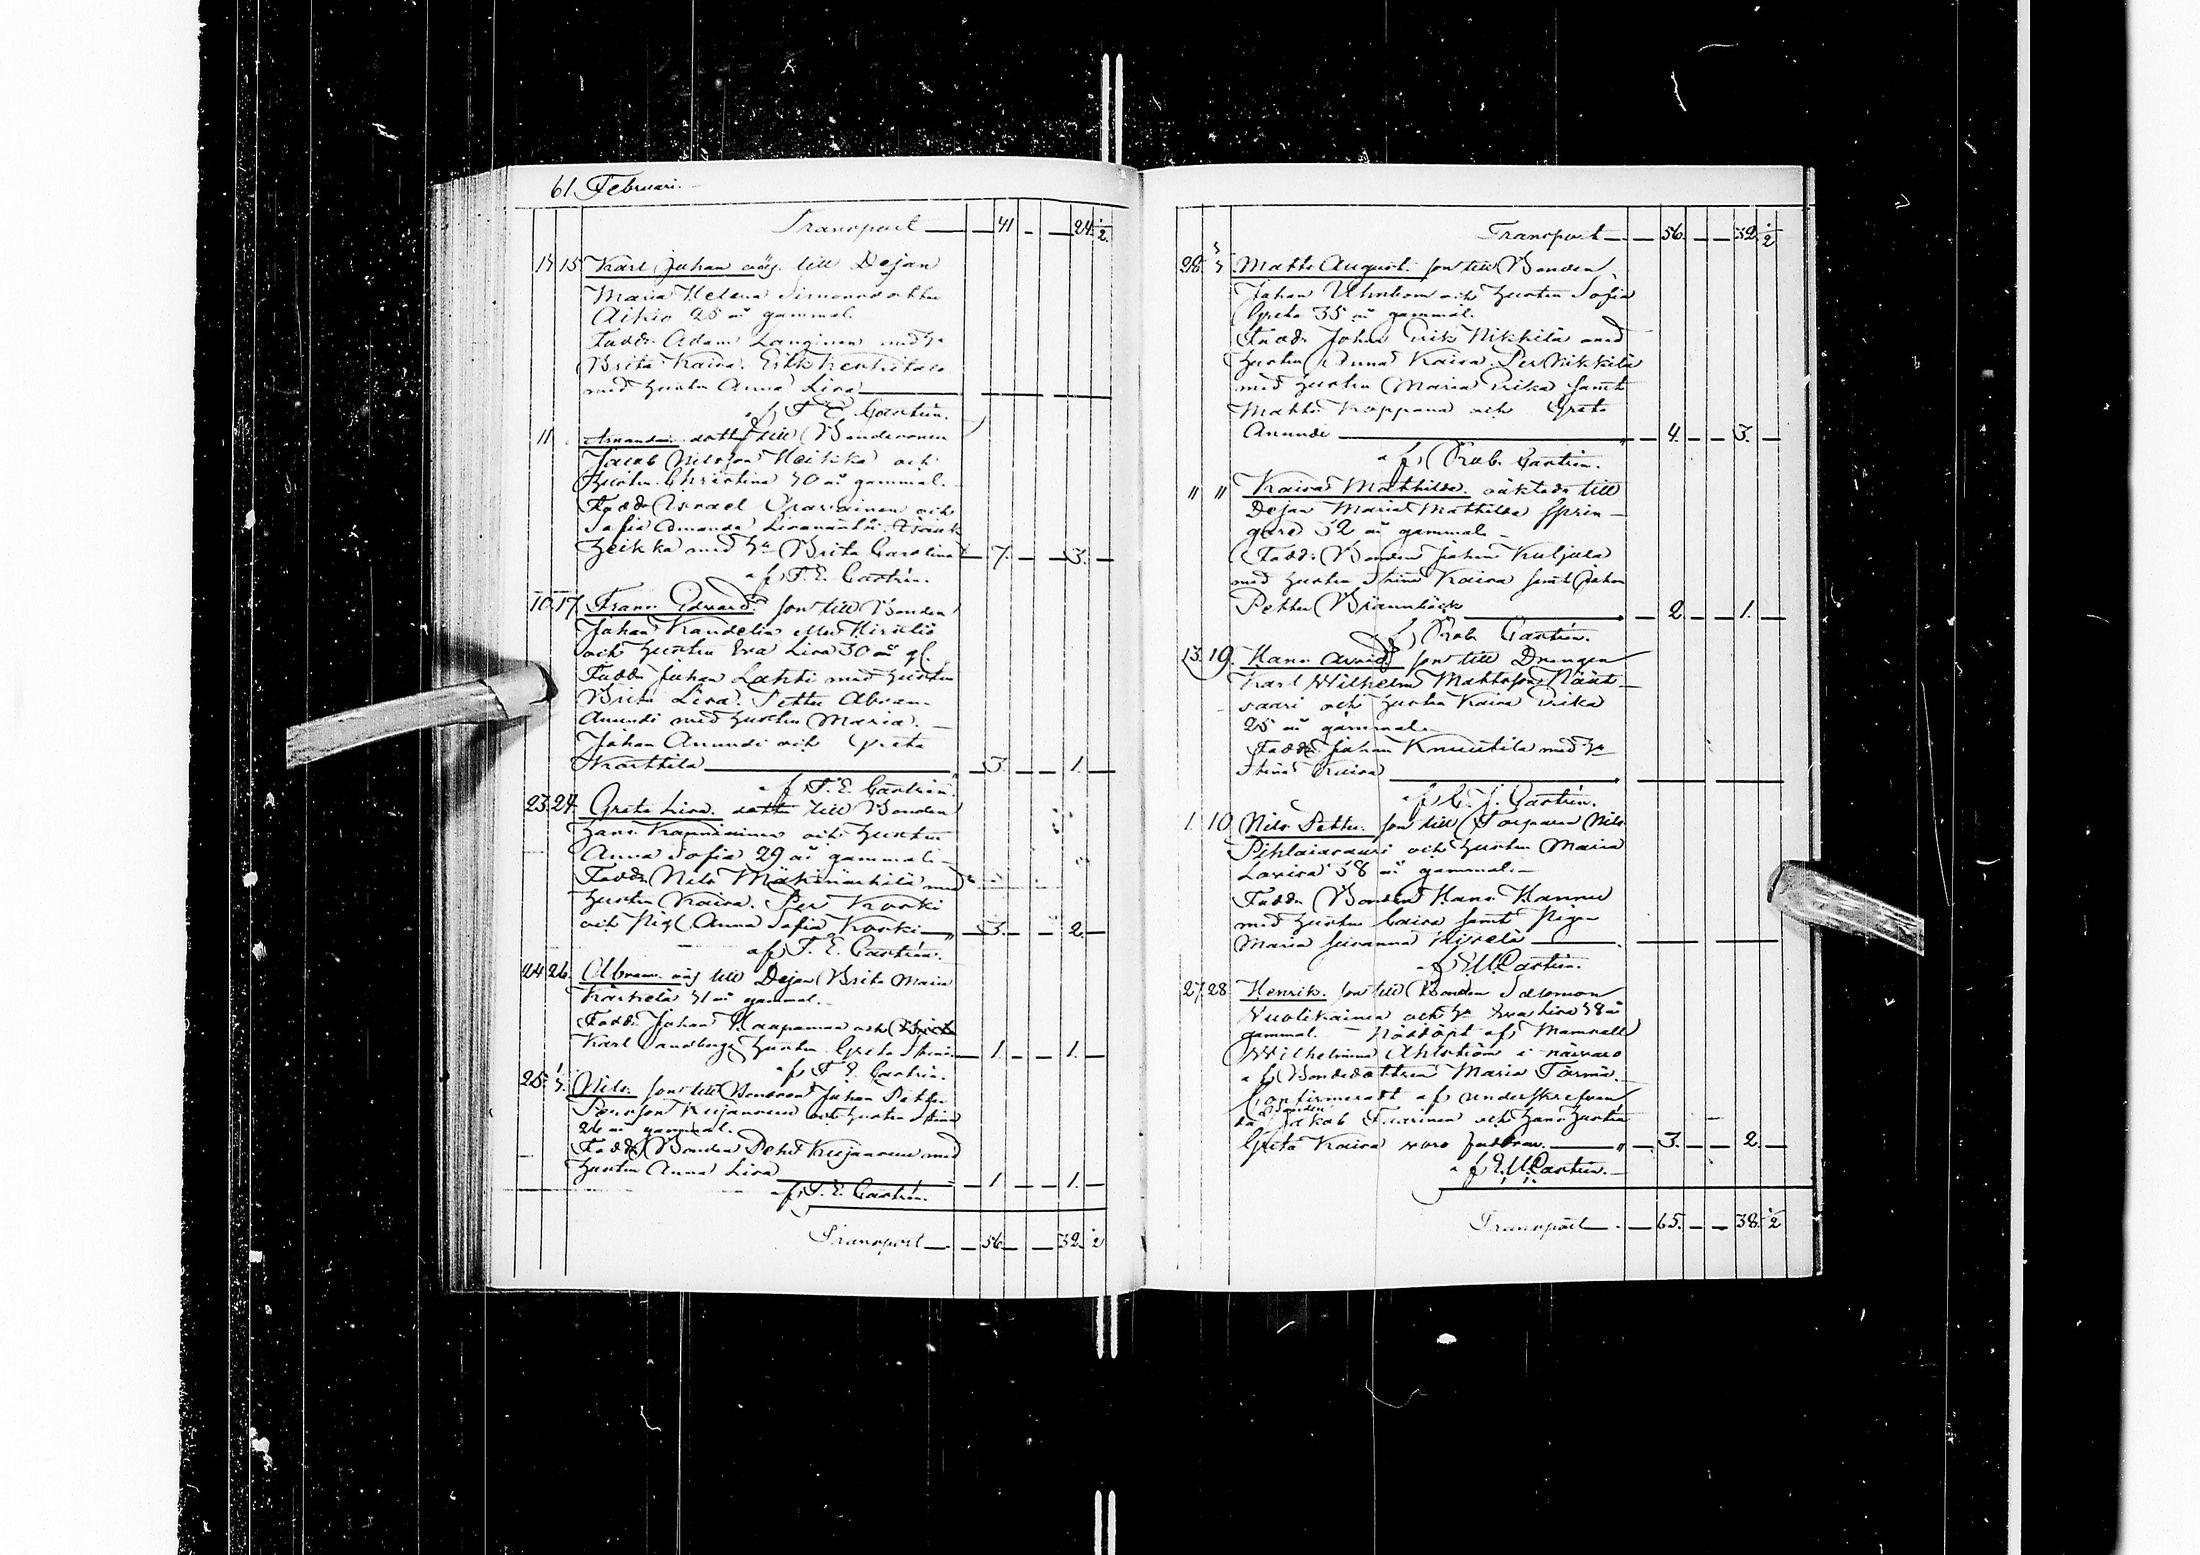 61. Februari.
Transport 41 24 1/2
14 15 Karl Johan oäg. till Dejan
Maria Helena Simonsdotter
Aikio 25 år gammal.
Fadd. Adam Langinen med h:
Brita Kaisa. Erik
med hustru Anna Lisa
af F. E. Castrén.
11 Amanda dotter till Bondesonen
Jacob Nilsson Heikka och
Hustru Christina 40 år gammal.
Fadd. Israel och
Sofia Amanda
Heikka med h:u Brita Carolina 7. 3.
af F. E. Castrén.
10 17 Frans Edvard. son till Bonden
Johan Kandelin eller
och hustru Eva Lisa 30 år gl.
Fadd. Johan Lahti med hustru
Brita Lisa. Petter Abram
Anundi med hustru Maria.
Johan Anundi och Greta
Karttila 3. 1.
af F. E. Castrén.
23 24 Greta Lisa. dotter till Bonden
Hans och hustru
Anna Sofia 29 år gammal.
Fadd. Nils med
hustru Kaisa. Per Korki
och Pig. Anna Sofia Korki 3. 2.
af F. E. Castrén.
24 26. Abram. oäg till Dejan Brita Maria
Kärkelä 41 år gammal.
Fadd. Johan Haapamaa och
Karl Sandbergs hustru Greta Stina 1. 1.
af F. E. Castrén.
25. Nils. son till Bondeson Johan Petter
Persson Kujansuu och hustru Stina
26 år gammal.
Fadd. Bonden Pehr Kujansuu med
hustru Anna Lisa 1 1.
af F. E. Castrén.
Transport 56 32 1/2
Transport 56. 32 1/2
28. Matts August. son till Bonden
Johan och hustru Sofia
Greta 35 år gammal.
Fadd. Johan Erik Nikkilä med
hustru Anna Kaisa. Per Nikkilä
med hustru Maria Erika samt
Matts Koppana och Greta
Anundi 4. 3.
af Prob. Castrén.
" " Kaisa Mathilda. oäkta dr till
Dejan Maria Mathilda Sprin-
gare 32 år gammal.
Fadd. Bonden Johan Kuljula
med hustru Stina Kaisa samt Johan
Petter Brännbäck 2 1.
af Prob. Castrén.
13. 19. Hans Arvid son till Drengen
Karl Wilhelm Mattsson
saari och hustru Kaisa Erika
25 år gammal.
Fadd. Johan Knuutila med h:u
Stina Kaisa
af C. J. Castrén.
1. 10 Nils Petter. son till Torparen Nils
Pihlajasaari och hustru Maria
Lovisa 38 år gammal.
Fadd. Bonden Hans Hannu
med hustru Caisa samt Pigan
Maria Susanna
af E. U. Castrén.
27. 28 Henrik. son till Bonden Salomon
Vuolikainen och h:u Eva Lisa 38 år
gammal. Nöddöpt af Mamsell
Wilhelmina Ahlström i närvaro
af Bondedottren Maria Törmä.
Confirmeradt af underskrefven
då Bonden Jakob Tuorinen och hans hustru
Greta Kaisa voro faddrar. 3. 2.
af E. U. Castrén.
Transport 65. 38. 1/2